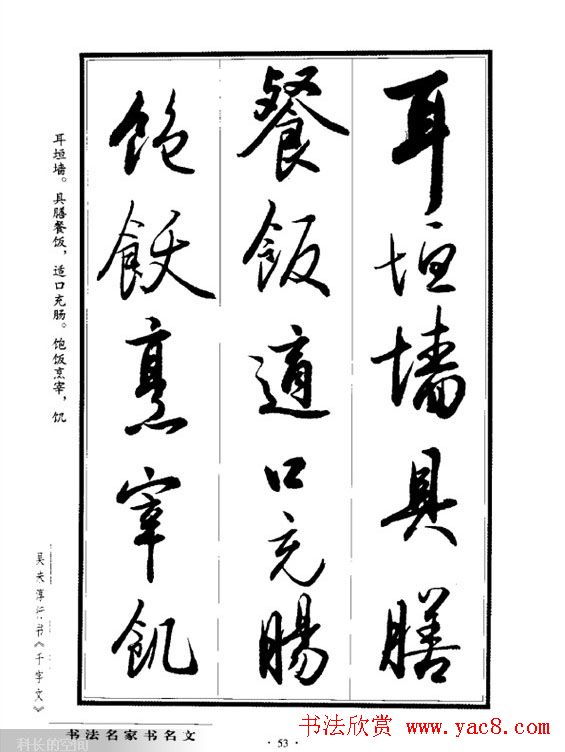 耳垣墙具膳
餐饭适口充肠
饱饫烹宰飢
耳垣墙。具膳餐饭，适口充肠。饱饭烹宰，饥
吴未淳行书《千字文》
书法名家书名文
· 53 ·
科长的空间
书法欣赏 www.yac8.com